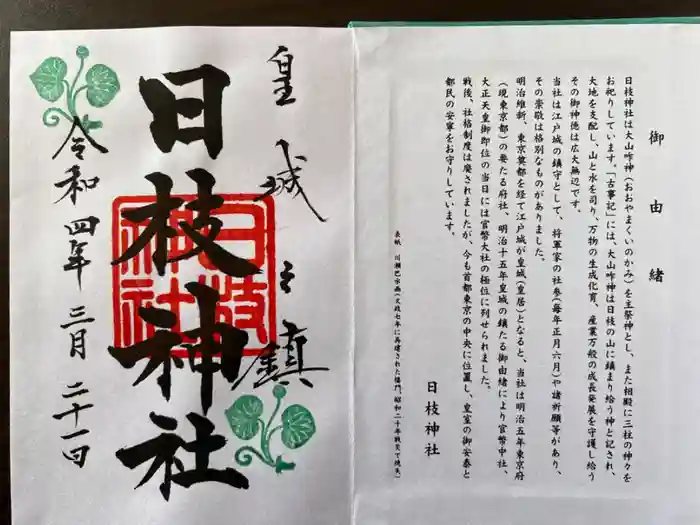 御由緒
日枝神社は大山咋神(おおやまくいのかみ)を主祭神とし、また相殿に三柱の神々を
お祀りしています。「古事記」には、大山咋神は日枝の山に鎮まり給う神と記され、
大地を支配し、山と水を司り、万物の生成化育、産業万般の成長発展を守護し給う
その御神徳は広大無辺です。
当社は江戸城の鎮守として、将軍家の社参(毎年正月六月)や諸祈願等があり、
その崇敬は格別なものがありました。
明治維新、東京奠都を経て江戸城が皇城(皇居)となると、当社は明治五年東京府
(現東京都)の要たる府社、明治十五年皇城の鎮たる御由緒により官幣中社、
大正天皇御即位の当日には官幣大社の極位に列せられました。
戦後、社格制度は廃されましたが、今も首都東京の中央に位置し、皇室の御安泰と
都民の安寧をお守りしています。
日枝神社
表紙 川瀬巴水画(文政七年に再建された楼門、昭和二十年戦災で焼失)
皇城之鎮
日枝神社
日枝神社
令和四年三月二十一日